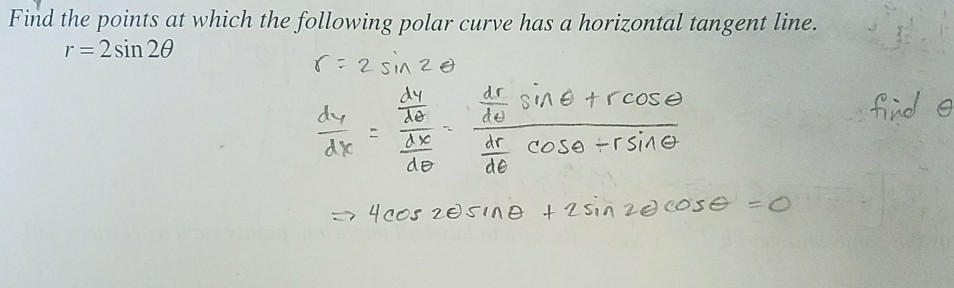 Find the points at which the following polar curve has a horizontal tangent line.
r = 2 sin 2θ
r = 2 sin 2θ
dy/dx = (dy/dθ)/(dx/dθ) = (dr/dθ sinθ + r cosθ)/(dr/dθ cosθ - r sinθ)
find θ
⇒ 4cos 2θ sinθ + 2 sin 2θ cosθ = 0